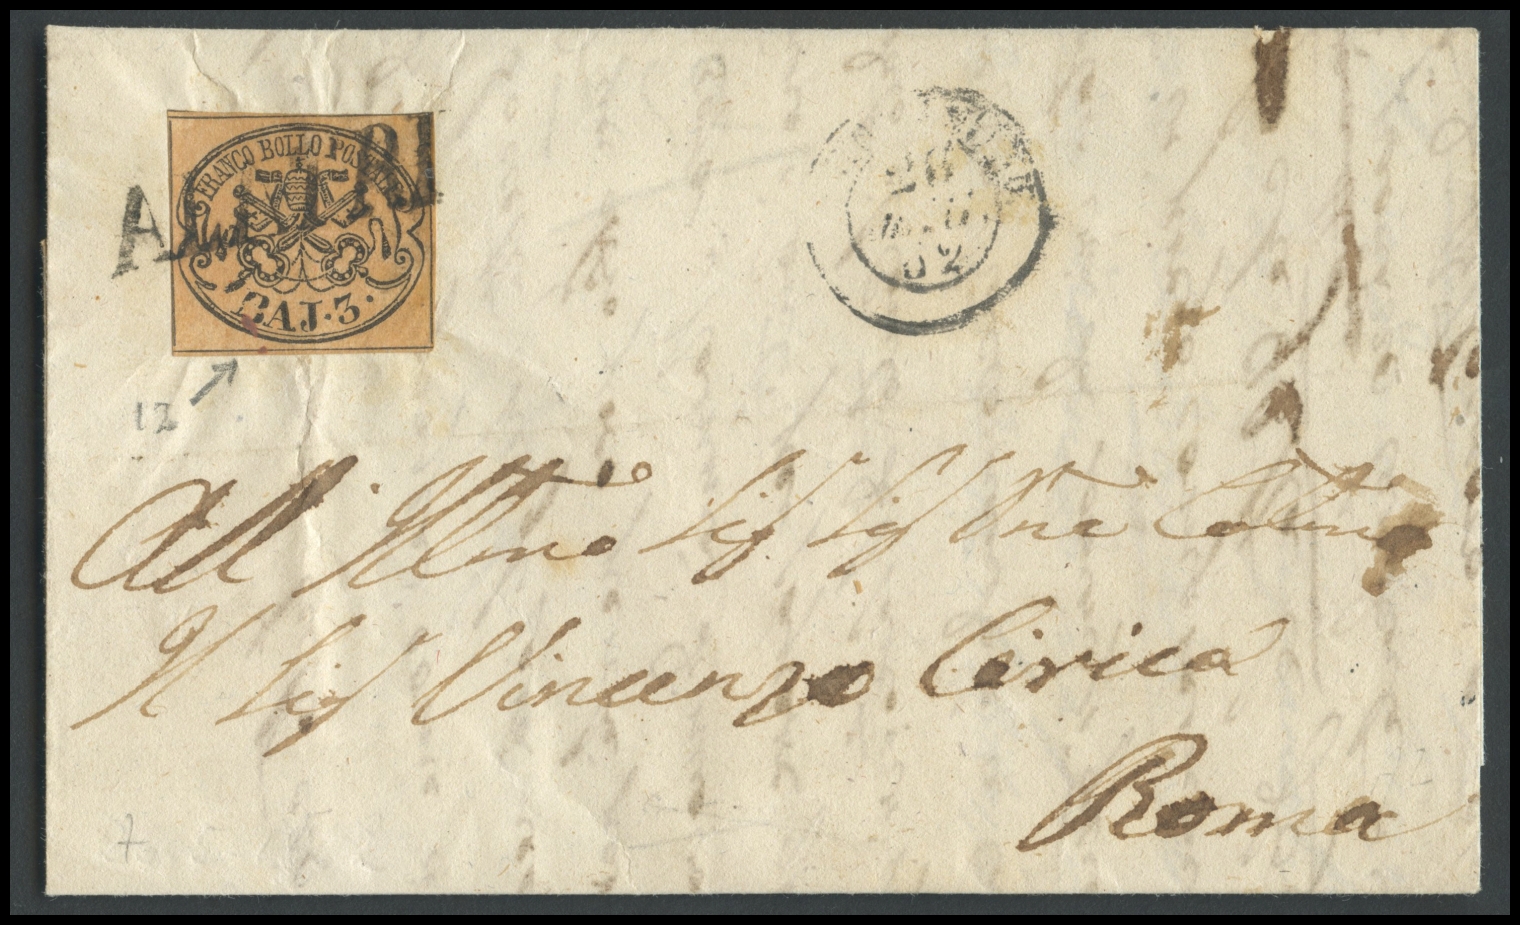 FRANCO BOLLO POSTALE
BAJ. 3.
ALATRI
26
62
12
All Illmo Sig Sig Pne Colmo
Il Sig Vincenzo Cirica
Roma
7